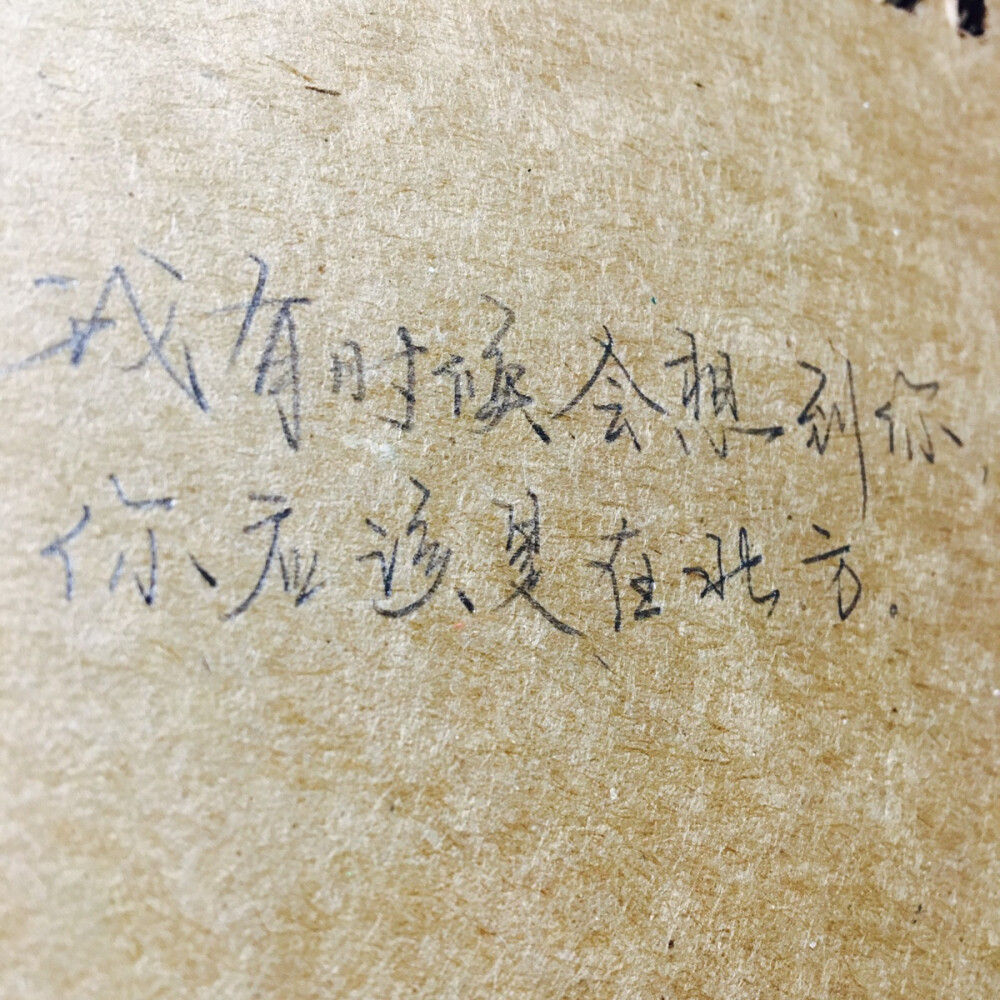 我有时候会想到你,
你应该是在北方。